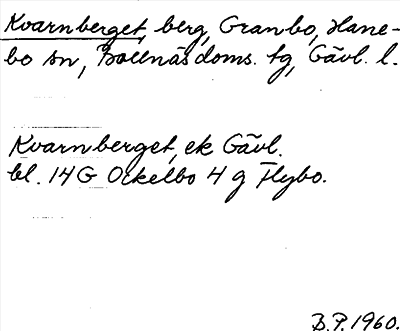 Kvarnberget, berg, Granbo, Hane-
bo sn, Bollnäs doms. tg, Gävl. l.
Kvarnberget, ek Gävl.
bl. 14G Ockelbo 4 g Flybo.
B.P. 1960.